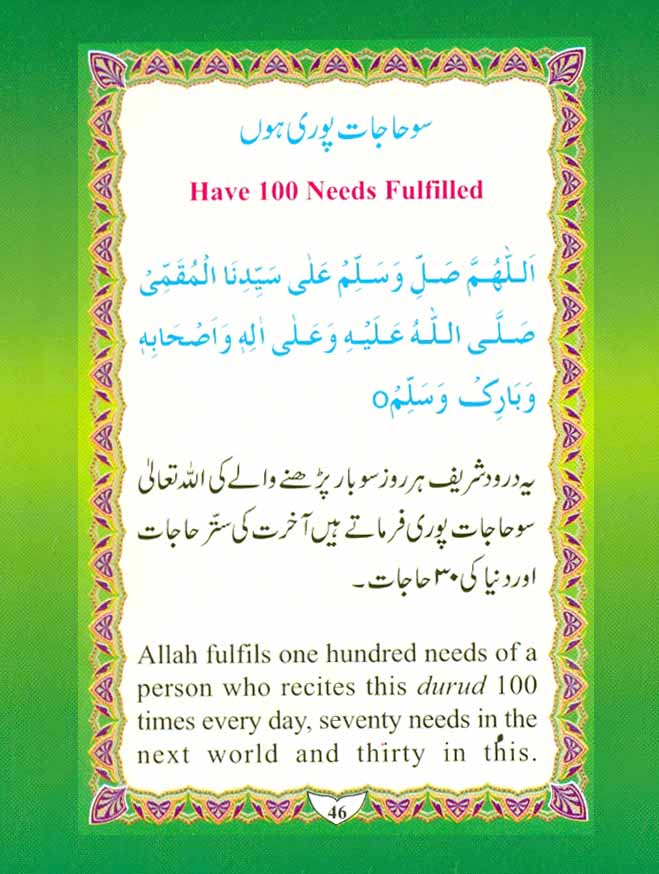 سو حاجات پوری ہوں
Have 100 Needs Fulfilled
اَللّٰهُمَّ صَلِّ وَسَلِّمْ عَلٰى سَيِّدِنَا الْمُقَمِّىْ
صَلَّى اللّٰهُ عَلَيْهِ وَعَلٰى اٰلِهٖ وَاَصْحَابِهٖ
وَبَارِكْ وَسَلِّمْ o
یہ درود شریف ہر روز سو بار پڑھنے والے کی اللہ تعالیٰ
سو حاجات پوری فرماتے ہیں آخرت کی ستّر حاجات
اور دنیا کی ۳۰ حاجات۔
Allah fulfils one hundred needs of a
person who recites this durud 100
times every day, seventy needs in the
next world and thirty in this.
46